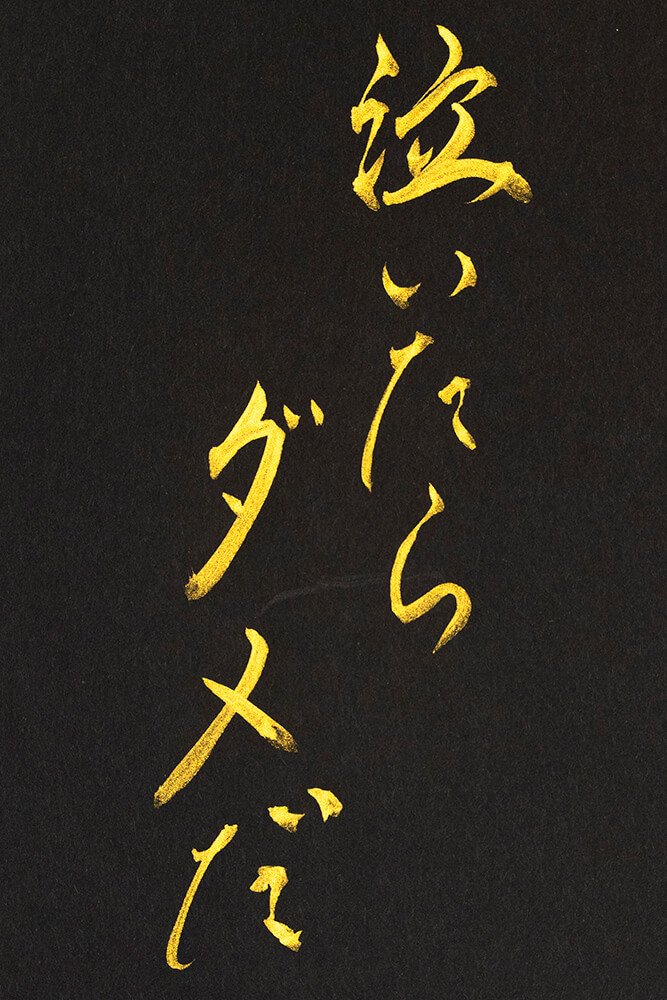 泣いたら
ダメだ